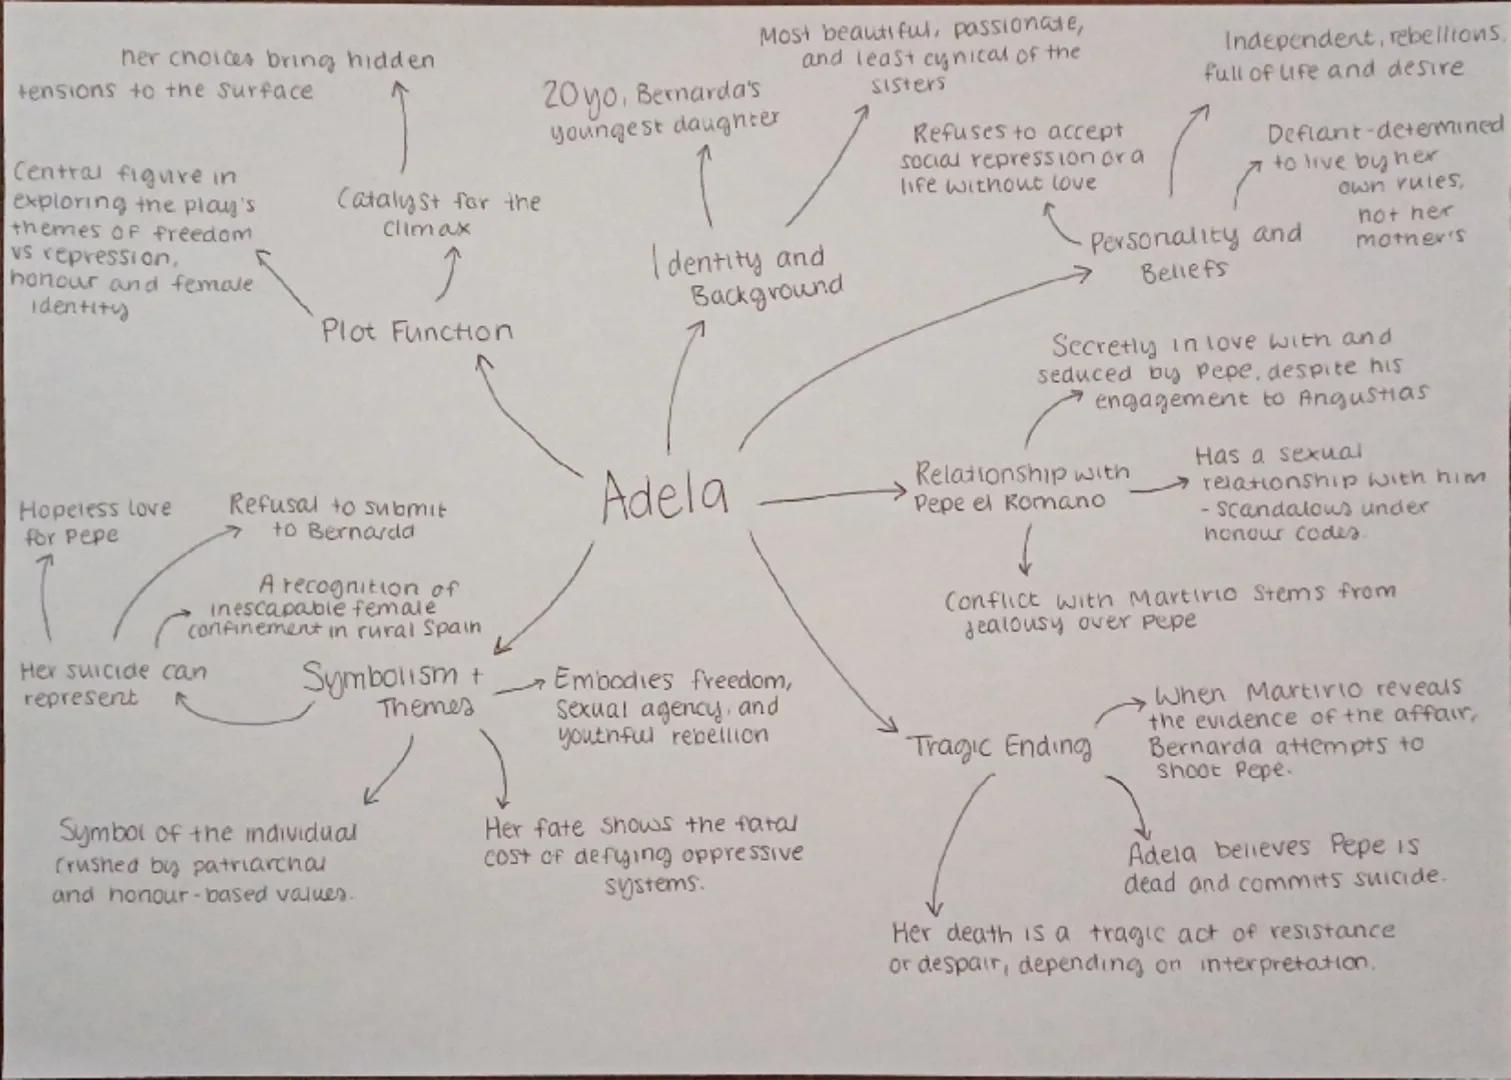 Adela
Plot Function
Central figure in
exploring the play's
themes of freedom
vs repression,
honour and female
identity
Catalyst for the
climax
her choices bring hidden
tensions to the surface
Identity and
Background
20yo, Bernarda's
youngest daughter
Most beautiful, passionate,
and least cynical of the
sisters
Personality and
Beliefs
Refuses to accept
social repression or a
life without love
Independent, rebellions,
full of life and desire
Defiant-determined
to live by her
own rules,
not her
mother's
Relationship with
Pepe el Romano
Secretly in love with and
seduced by Pepe, despite his
engagement to Angustias
Has a sexual
relationship with him
- scandalous under
honour codes.
Conflict with Martirio stems from
jealousy over Pepe
Tragic Ending
When Martirio reveals
the evidence of the affair,
Bernarda attempts to
shoot Pepe.
Adela believes Pepe is
dead and commits suicide.
Her death is a tragic act of resistance
or despair, depending on interpretation.
Symbolism +
Themes
Embodies freedom,
sexual agency, and
youthful rebellion
Her fate shows the fatal
cost of defying oppressive
systems.
Symbol of the individual
crushed by patriarchal
and honour-based values.
Her suicide can
represent
Hopeless love
for Pepe
Refusal to submit
to Bernarda
A recognition of
inescapable female
confinement in rural Spain